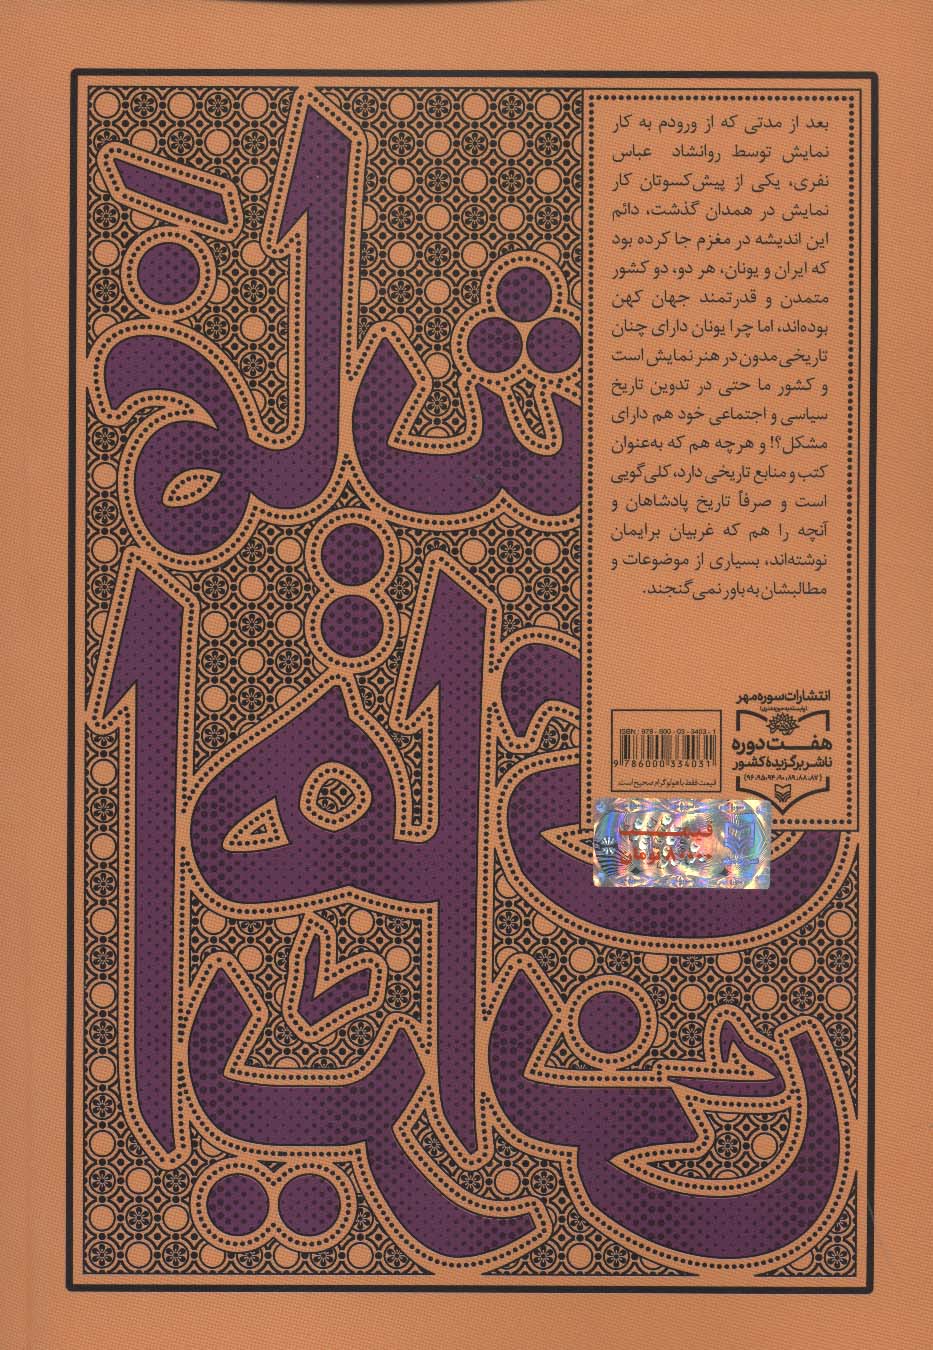 بعد از مدتی که از ورودم به کار
نمایش توسط روانشاد عباس
نفری، یکی از پیش‌کسوتان کار
نمایش در همدان گذشت، دائم
این اندیشه در مغزم جا کرده بود
که ایران و یونان، هر دو، دو کشور
متمدن و قدرتمند جهان کهن
بوده‌اند، اما چرا یونان دارای چنان
تاریخی مدون در هنر نمایش است
و کشور ما حتی در تدوین تاریخ
سیاسی و اجتماعی خود هم دارای
مشکل؟! و هرچه هم که به‌عنوان
کتب و منابع تاریخی دارد، کلی‌گویی
است و صرفاً تاریخ پادشاهان و
آنچه را هم که غربیان برایمان
نوشته‌اند، بسیاری از موضوعات و
مطالبشان به باور نمی‌گنجند.
انتشارات سوره مهر
(وابسته به حوزه هنری)
هفت دوره
ناشر برگزیده کشور
(۸۷،۸۸،۸۹،۹۰،۹۴،۹۵،۹۶)
ISBN: 978-600-03-3403-1
9 786000 334031
قیمت فقط با هولوگرام صحیح است.
قیمت
۸۰۰۰۰ تومان